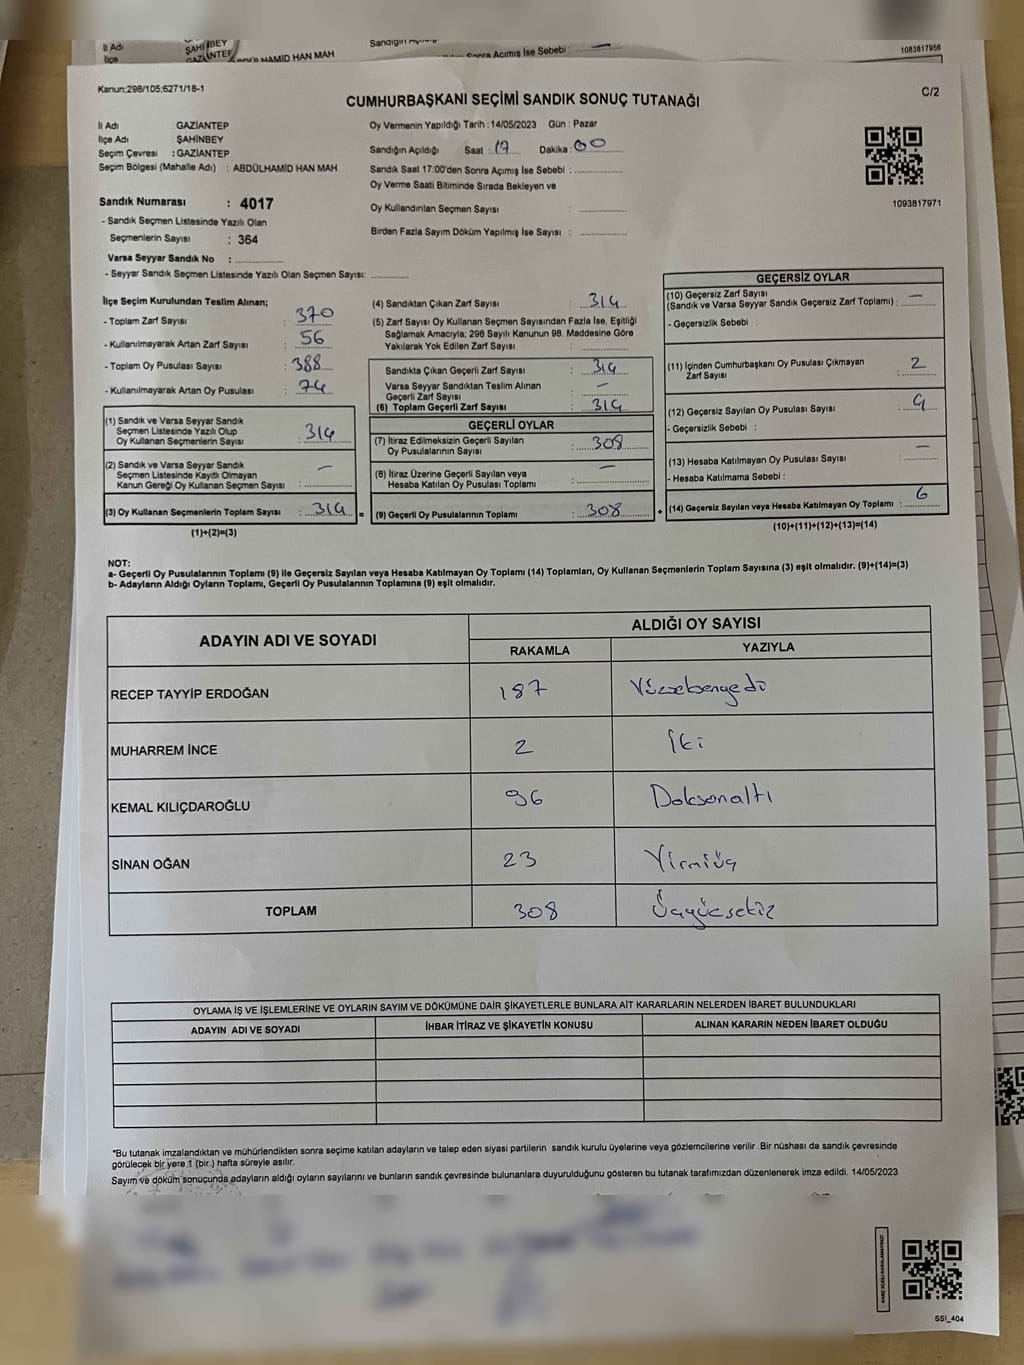 İl Adı
İlçe
ŞAHİNBEY
GAZİANTEP
HAMİD HAN MAH
Sandığın
Sonra Açımış İse Sebebi :
1083817956
Kanun;298/105;6271/18-1
CUMHURBAŞKANI SEÇİMİ SANDIK SONUÇ TUTANAĞI
C/2
İl Adı : GAZİANTEP
İlçe Adı : ŞAHİNBEY
Seçim Çevresi : GAZİANTEP
Seçim Bölgesi (Mahalle Adı) : ABDÜLHAMİD HAN MAH
Oy Vermenin Yapıldığı Tarih : 14/05/2023 Gün : Pazar
Sandığın Açıldığı Saat : 17 Dakika : 00
Sandık Saat 17:00'den Sonra Açımış İse Sebebi :
Oy Verme Saati Bitiminde Sırada Bekleyen ve
Oy Kullandırılan Seçmen Sayısı :
Birden Fazla Sayım Döküm Yapılmış İse Sayısı :
1093817971
Sandık Numarası : 4017
- Sandık Seçmen Listesinde Yazılı Olan
Seçmenlerin Sayısı : 364
Varsa Seyyar Sandık No :
- Seyyar Sandık Seçmen Listesinde Yazılı Olan Seçmen Sayısı:
İlçe Seçim Kurulundan Teslim Alınan;
- Toplam Zarf Sayısı : 370
- Kullanılmayarak Artan Zarf Sayısı : 56
- Toplam Oy Pusulası Sayısı : 388
- Kullanılmayarak Artan Oy Pusulası : 74
(1) Sandık ve Varsa Seyyar Sandık
Seçmen Listesinde Yazılı Olup
Oy Kullanan Seçmenlerin Sayısı : 314
(2) Sandık ve Varsa Seyyar Sandık
Seçmen Listesinde Kayıtlı Olmayan
Kanun Gereği Oy Kullanan Seçmen Sayısı : —
(3) Oy Kullanan Seçmenlerin Toplam Sayısı : 314 =
(1)+(2)=(3)
(4) Sandıktan Çıkan Zarf Sayısı : 314
(5) Zarf Sayısı Oy Kullanan Seçmen Sayısından Fazla İse, Eşitliği
Sağlamak Amacıyla; 298 Sayılı Kanunun 98. Maddesine Göre
Yakılarak Yok Edilen Zarf Sayısı :
Sandıkta Çıkan Geçerli Zarf Sayısı : 314
Varsa Seyyar Sandıktan Teslim Alınan
Geçerli Zarf Sayısı : —
(6) Toplam Geçerli Zarf Sayısı : 314
GEÇERLİ OYLAR
(7) İtiraz Edilmeksizin Geçerli Sayılan
Oy Pusulalarının Sayısı : 308
(8) İtiraz Üzerine Geçerli Sayılan veya
Hesaba Katılan Oy Pusulası Toplamı : —
(9) Geçerli Oy Pusulalarının Toplamı : 308 +
GEÇERSİZ OYLAR
(10) Geçersiz Zarf Sayısı
(Sandık ve Varsa Seyyar Sandık Geçersiz Zarf Toplamı) : —
- Geçersizlik Sebebi :
(11) İçinden Cumhurbaşkanı Oy Pusulası Çıkmayan
Zarf Sayısı : 2
(12) Geçersiz Sayılan Oy Pusulası Sayısı : 4
- Geçersizlik Sebebi :
(13) Hesaba Katılmayan Oy Pusulası Sayısı : —
- Hesaba Katılmama Sebebi :
(14) Geçersiz Sayılan veya Hesaba Katılmayan Oy Toplamı : 6
(10)+(11)+(12)+(13)=(14)
NOT:
a- Geçerli Oy Pusulalarının Toplamı (9) ile Geçersiz Sayılan veya Hesaba Katılmayan Oy Toplamı (14) Toplamları, Oy Kullanan Seçmenlerin Toplam Sayısına (3) eşit olmalıdır. (9)+(14)=(3)
b- Adayların Aldığı Oyların Toplamı, Geçerli Oy Pusulalarının Toplamına (9) eşit olmalıdır.
ADAYIN ADI VE SOYADI
ALDIĞI OY SAYISI
RAKAMLA YAZIYLA
RECEP TAYYİP ERDOĞAN 187 Yüzseksenyedi
MUHARREM İNCE 2 İki
KEMAL KILIÇDAROĞLU 96 Doksanaltı
SİNAN OĞAN 23 Yirmiüç
TOPLAM 308 Üçyüzsekiz
OYLAMA İŞ VE İŞLEMLERİNE VE OYLARIN SAYIM VE DÖKÜMÜNE DAİR ŞİKAYETLERLE BUNLARA AİT KARARLARIN NELERDEN İBARET BULUNDUKLARI
ADAYIN ADI VE SOYADI İHBAR İTİRAZ VE ŞİKAYETİN KONUSU ALINAN KARARIN NEDEN İBARET OLDUĞU
*Bu tutanak imzalandıktan ve mühürlendikten sonra seçime katılan adayların ve talep eden siyasi partilerin sandık kurulu üyelerine veya gözlemcilerine verilir. Bir nüshası da sandık çevresinde
görülecek bir yere 1 (bir) hafta süreyle asılır.
Sayım ve döküm sonucunda adayların aldığı oyların sayılarını ve bunların sandık çevresinde bulunanlara duyurulduğunu gösteren bu tutanak tarafımızdan düzenlenerek imza edildi. 14/05/2023
KARE KODU KARALAMAYINIZ!
SSI_404